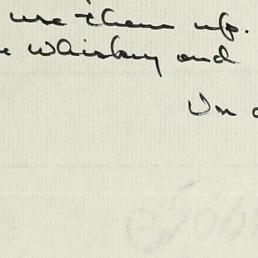 use them up.
whiskey and
In